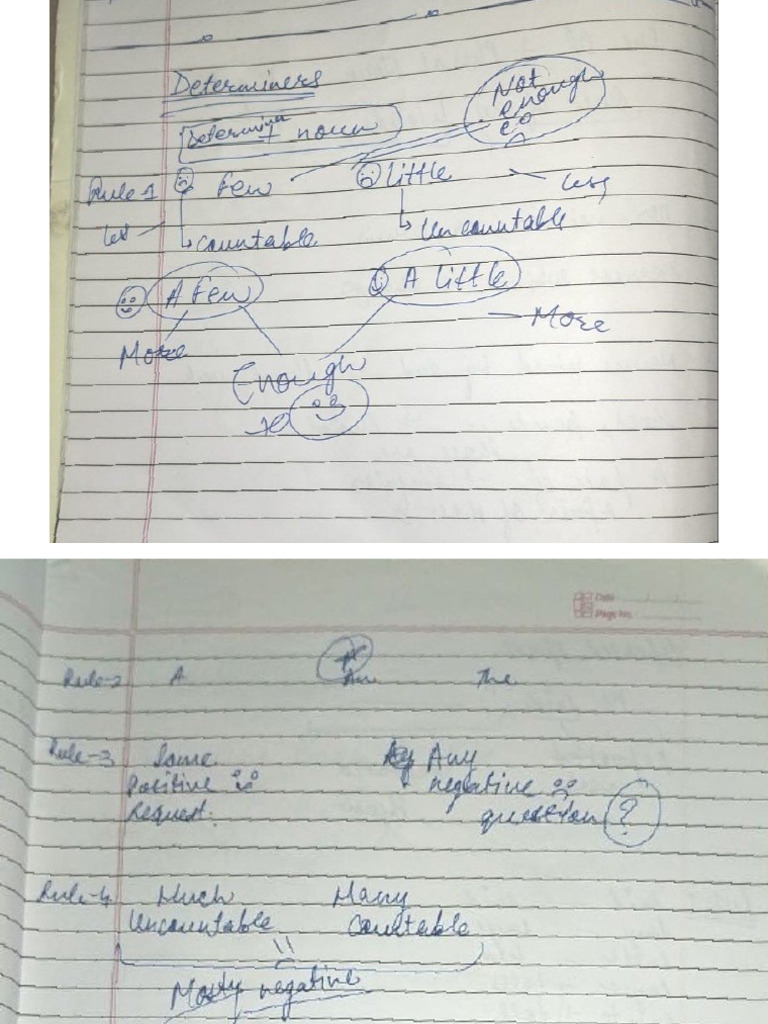 Determiners
Not
enough
Determina + noun
Rule-1 Few little less
Countable Uncountable
A Few A little
More More
Enough
Date
Page No.
Rule-2 A An The
Rule-3 Some Any
Positive negative
Request question ?
Rule-4 Much Many
Uncountable Countable
Mosty negative